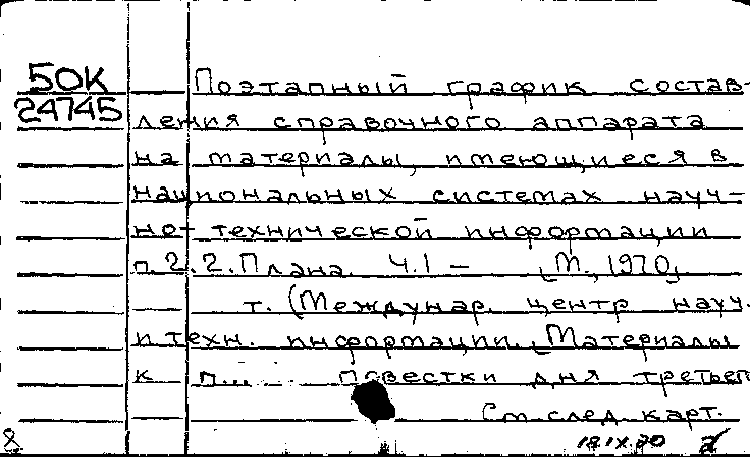 50К
24745
Поэтапный график состав-
ления справочного аппарата
на материалы, имеющиеся в
национальных системах науч-
но-технической информации
п.2.2.Плана. Ч.1 – [М., 1970]
т. (Междунар. центр науч.
и техн. информации. [Материалы
к п... повестки дня третьей
См. след. карт.